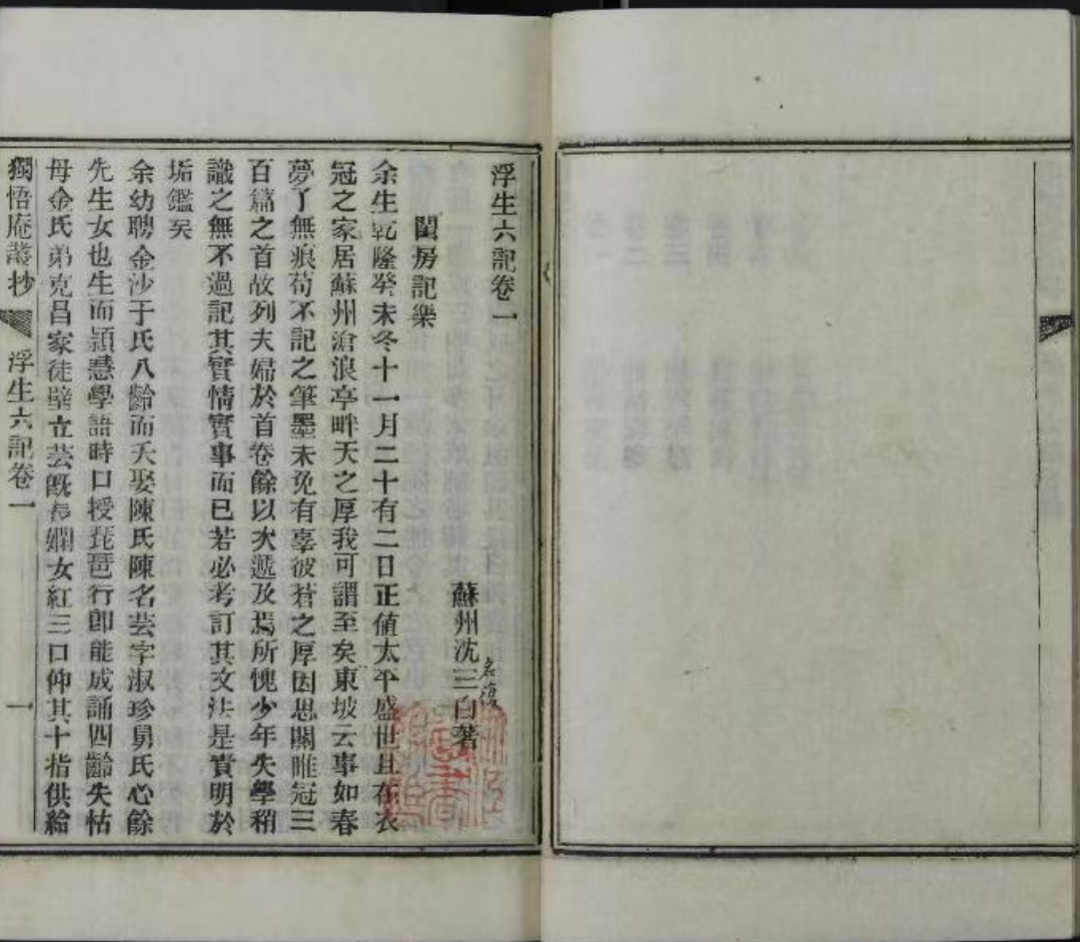 浮生六記卷一
蘇州沈三白著
名復
閨房記樂
余生乾隆癸未冬十一月二十有二日正值太平盛世且在衣
冠之家居蘇州滄浪亭畔天之厚我可謂至矣東坡云事如春
夢了無痕苟不記之筆墨未免有辜彼蒼之厚因思關雎冠三
百篇之首故列夫婦於首卷餘以次遞及焉所愧少年失學稍
識之無不過記其實情實事而已若必考訂其文法是責明於
垢鑑矣
余幼聘金沙于氏八齡而夭娶陳氏陳名芸字淑珍舅氏心餘
先生女也生而穎慧學語時口授琵琶行卽能成誦四齡失怙
母金氏弟克昌家徒壁立芸旣長嫻女紅三口仰其十指供給
獨悟庵叢抄
浮生六記卷一
一